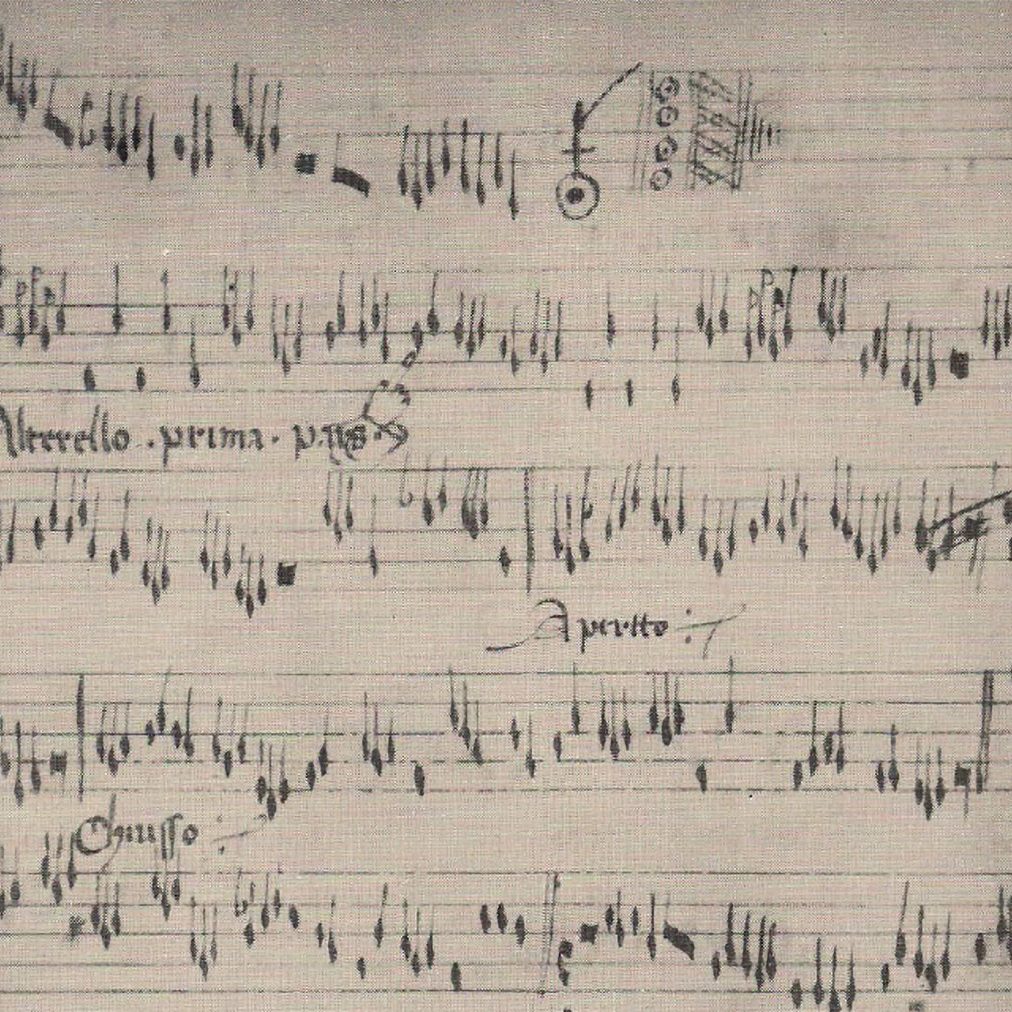 Alterello . prima . pars .
Apertto :
Chiusso :